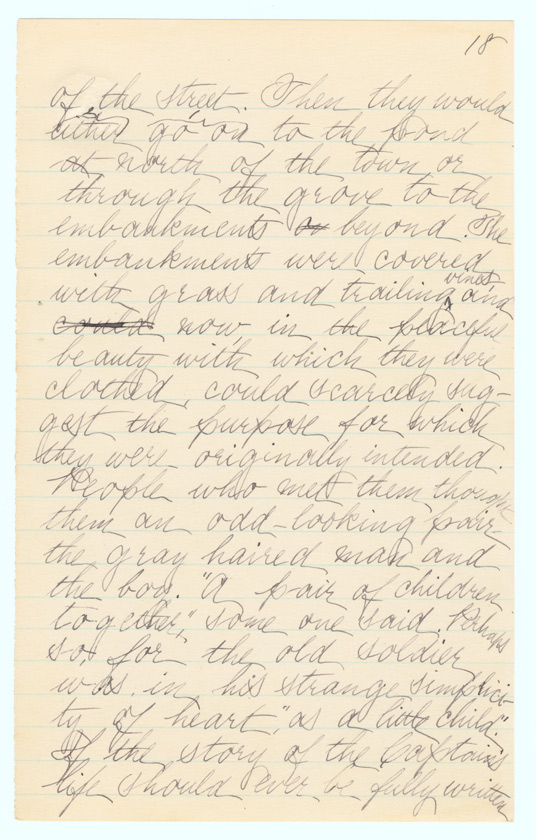 18
of the street. Then they would
either go on to the pond
at north of the town or
through the grove to the
embankments or beyond. The
embankments were covered
with grass and trailing vines and
could now in the peaceful
beauty with which they were
clothed, could scarcely sug-
gest the purpose for which
they were originally intended.
People who met them thought
them an odd-looking pair
the gray haired man and
the boy. "A pair of children
together," some one said. Perhaps
so, for the old soldier
was in his strange simplici-
ty of heart, "as a little child."
If the story of the Captain's
life should ever be fully written